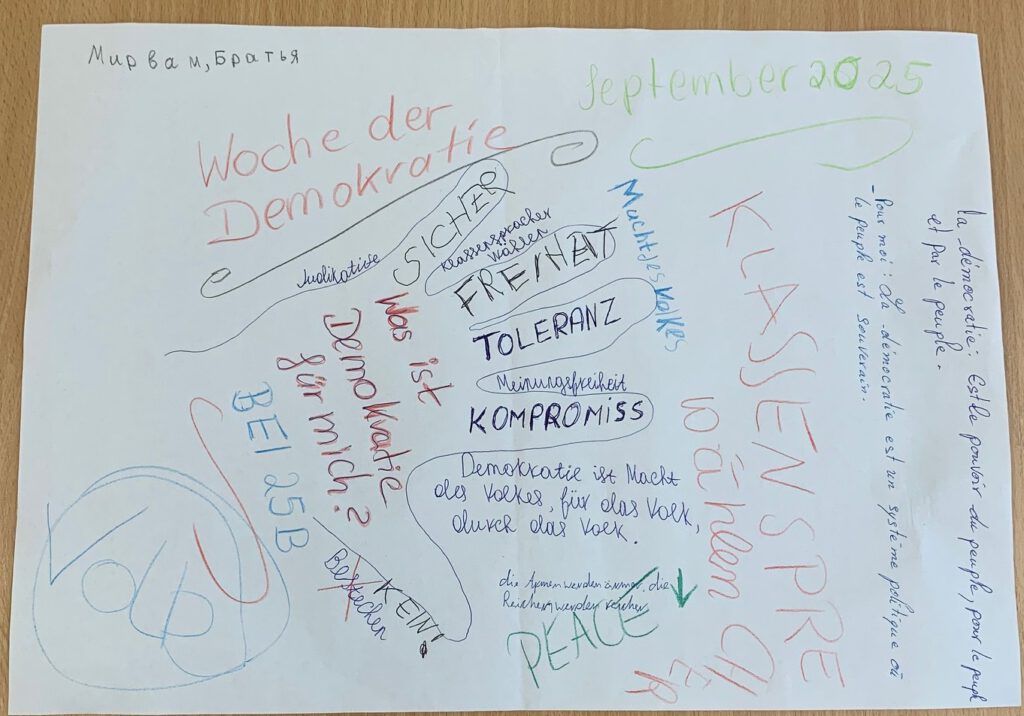 Мир вам, Братья
September 2025
Woche der
Demokratie
Judikative
SICHER
Klassensprecher
wählen
FREIHEIT
TOLERANZ
Meinungsfreiheit
KOMPROMISS
Macht des Volkes
Was ist
Demokratie
für mich?
BEI 25B
Demokratie ist Macht
des Volkes, für das Volk,
durch das Volk.
KEIN!
Bestechen
die Armen werden ärmer, die
Reichen werden reicher
PEACE
KLASSENSPRE
wählen CH
ER
la démocratie: Est le pouvoir du peuple, pour le peuple
et par le peuple.
- Pour moi: La démocratie est un système politique où
le peuple est souverain.